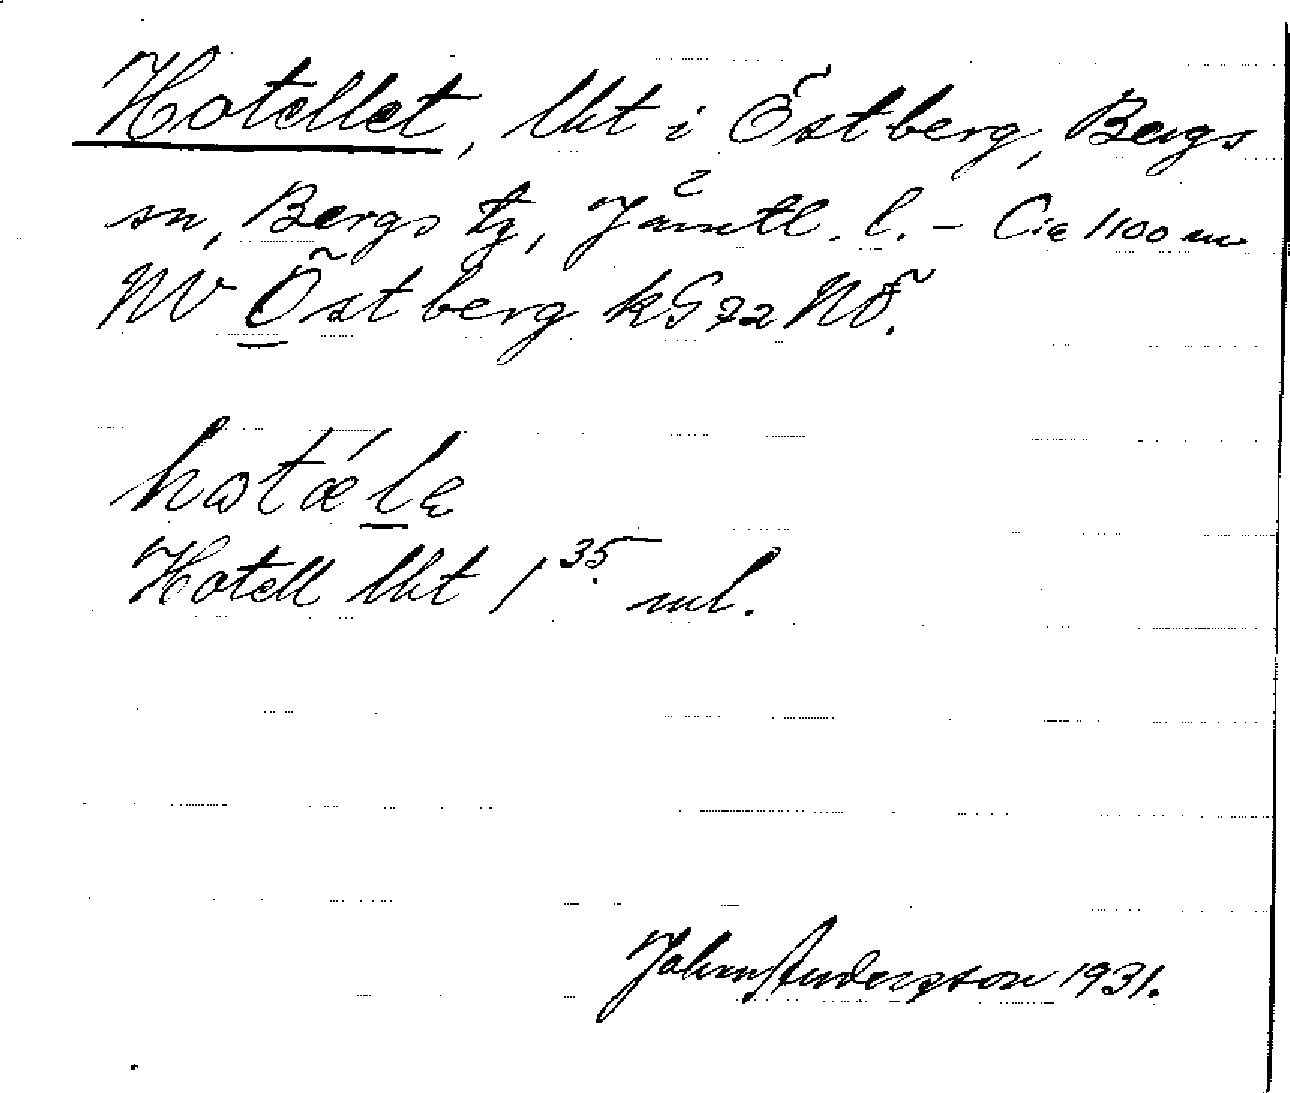 Hotellet, lht i Östberg, Bergs
sn, Bergs tg, Jämtl. l. – C: a 1100 m
NV Östberg kG 72 NÖ.
hotǽla
Hotell lht 1 35 ml.
John Andersson 1931.